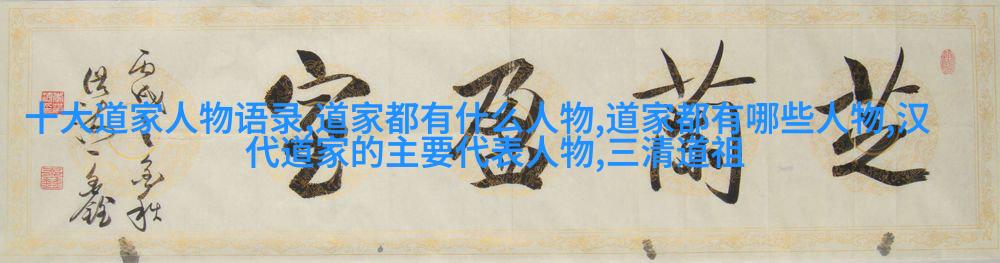 十大道家人物语录,道家都有什么人物,道家都有哪些人物,汉
代道家的主要代表人物,三清道祖
芝蘭盈室
丙戌之金秋